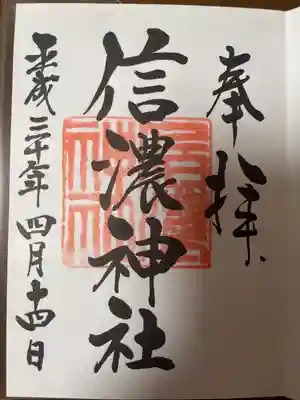 奉拝
信濃神社
平成三十年四月十四日